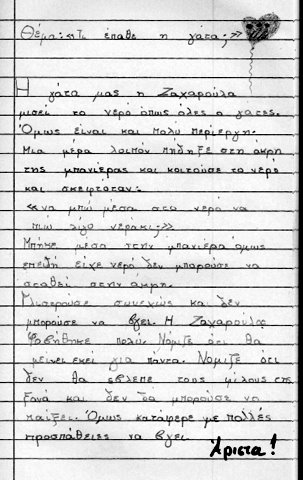 Θέμα: «Τι έπαθε η γάτα;»
Η γάτα μας η Ζαχαρούλα
μισεί το νερό όπως όλες ο γάτες.
Όμως είναι και πολύ περίεργη.
Μια μέρα λοιπόν πήδηξε στη άκρη
της μπανιέρας και κοιτούσε το νερο
και σκεφτόταν:
«να μπώ μέσα στο νερό να
πιω λίγο νεράκι;»
Μπήκε μέσα στην μπανιέρα όμως
επειδή είχε νερό δεν μπορούσε να
σταθεί στην άκρη.
Γλιστρούσε συνεχώς και δεν
μπορούσε να βγει. Η Ζαχαρούλα
φοβήθηκε πολύ. Νόμιζε ότι θα
μείνει εκεί για πάντα. Νόμιζε ότι
δεν θα έβλεπε τους φίλους της
ξανά και δεν θα μπορούσε να
παίξει. Όμως κατάφερε με πολλές
προσπάθειες να βγει
Άριστα!